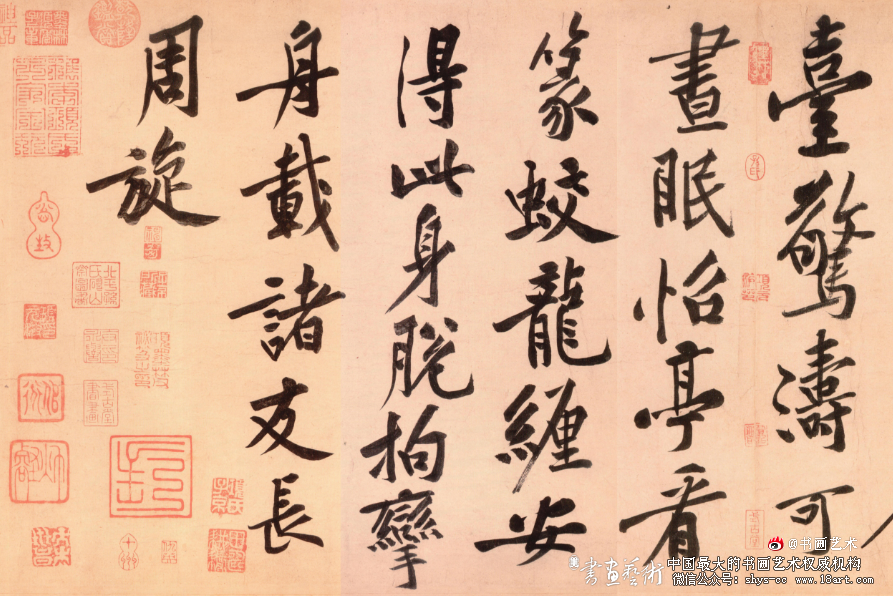 臺驚濤可
晝眠怡亭看
篆蛟龍纏安
得此身脫拘攣
舟載諸友長
周旋
@书画艺术
書畫藝術
中国最大的书画艺术权威机构
微信公众号: shys-cc www.18art.com